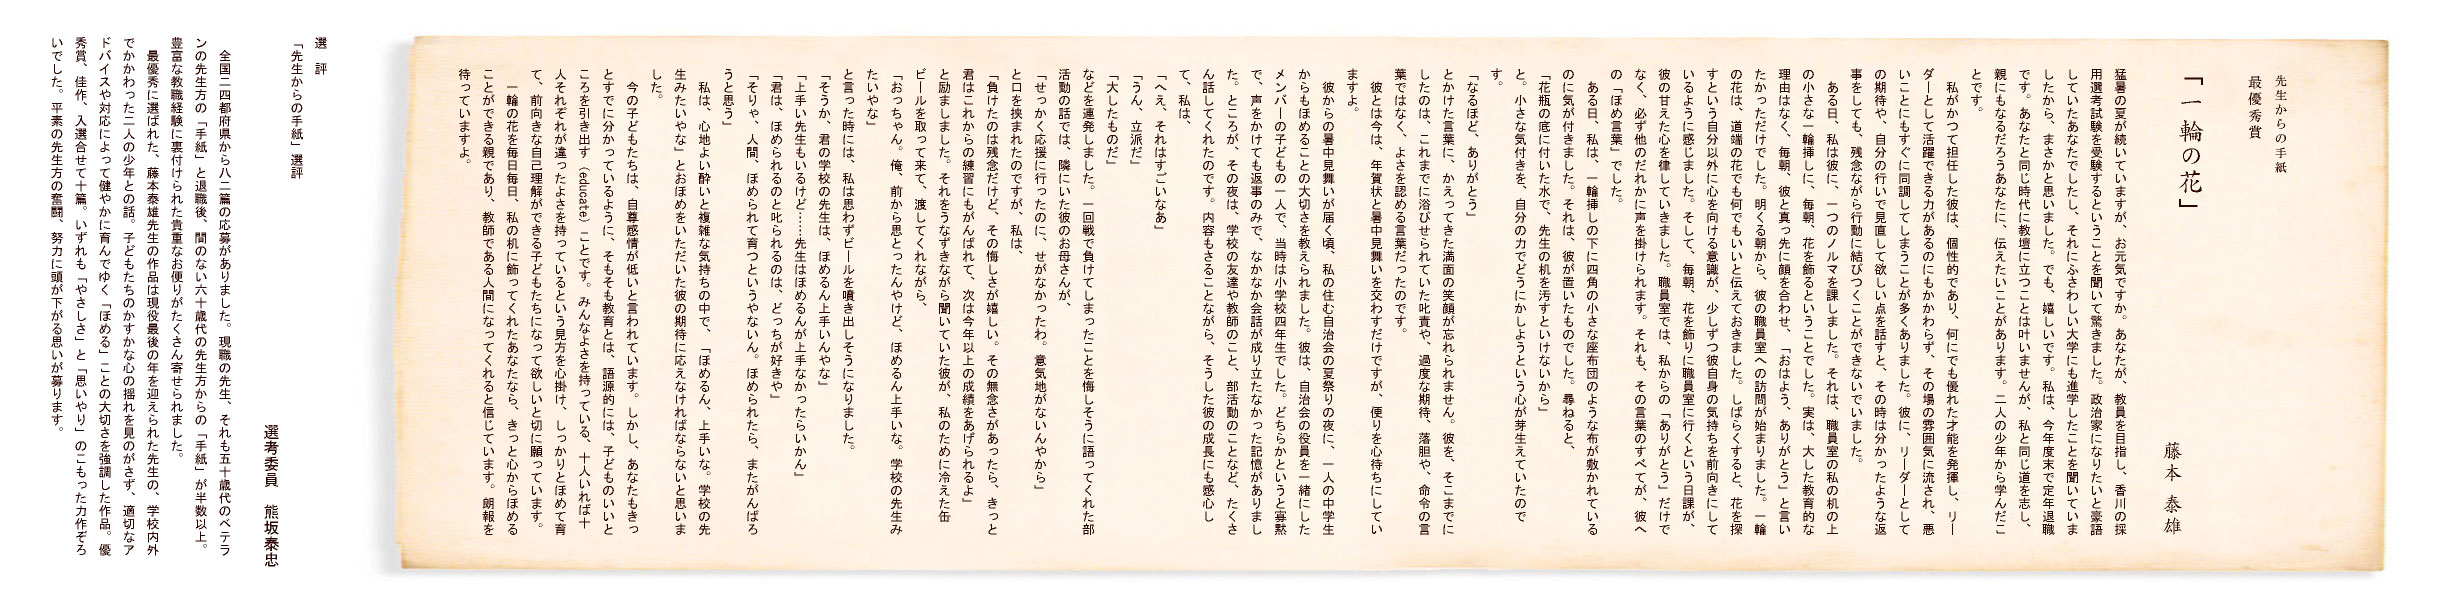 先生からの手紙
最優秀賞
「一輪の花」
藤本 泰雄
猛暑の夏が続いていますが、お元気ですか。あなたが、教員を目指し、香川の採
用選考試験を受験するということを聞いて驚きました。政治家になりたいと豪語
していたあなたでしたし、それにふさわしい大学にも進学したことを聞いていま
したから、まさかと思いました。でも、嬉しいです。私は、今年度末で定年退職
です。あなたと同じ時代に教壇に立つことは叶いませんが、私と同じ道を志し、
親にもなるだろうあなたに、伝えたいことがあります。二人の少年から学んだこ
とです。
私がかつて担任した彼は、個性的であり、何にでも優れた才能を発揮し、リー
ダーとして活躍できる力があるのにもかかわらず、その場の雰囲気に流され、悪
いことにもすぐに同調してしまうことが多くありました。彼に、リーダーとして
の期待や、自分の行いで見直して欲しい点を話すと、その時は分かったような返
事をしても、残念ながら行動に結びつくことができないでいました。
ある日、私は彼に、一つのノルマを課しました。それは、職員室の私の机の上
の小さな一輪挿しに、毎朝、花を飾るということでした。実は、大した教育的な
理由はなく、毎朝、彼と真っ先に顔を合わせ、「おはよう、ありがとう」と言い
たかっただけでした。明くる朝から、彼の職員室への訪問が始まりました。一輪
の花は、道端の花でも何でもいいと伝えておきました。しばらくすると、花を探
すという自分以外に心を向ける意識が、少しずつ彼自身の気持ちを前向きにして
いるように感じました。そして、毎朝、花を飾りに職員室に行くという日課が、
彼の甘えた心を律していきました。職員室では、私からの「ありがとう」だけで
なく、必ず他のだれかに声を掛けられます。それも、その言葉のすべてが、彼へ
の「ほめ言葉」でした。
ある日、私は、一輪挿しの下に四角の小さな座布団のような布が敷かれている
のに気が付きました。それは、彼が置いたものでした。尋ねると、
「花瓶の底に付いた水で、先生の机を汚すといけないから」
と。小さな気付きを、自分の力でどうにかしようという心が芽生えていたので
す。
「なるほど、ありがとう」
とかけた言葉に、かえってきた満面の笑顔が忘れられません。彼を、そこまでに
したのは、これまでに浴びせられていた叱責や、過度な期待、落胆や、命令の言
葉ではなく、よさを認める言葉だったのです。
彼とは今は、年賀状と暑中見舞いを交わすだけですが、便りを心待ちにしてい
ますよ。
彼からの暑中見舞いが届く頃、私の住む自治会の夏祭りの夜に、一人の中学生
からもほめることの大切さを教えられました。彼は、自治会の役員を一緒にした
メンバーの子どもの一人で、当時は小学校四年生でした。どちらかというと寡黙
で、声をかけても返事のみで、なかなか会話が成り立たなかった記憶がありまし
た。ところが、その夜は、学校の友達や教師のこと、部活動のことなど、たくさ
ん話してくれたのです。内容もさることながら、そうした彼の成長にも感心し
て、私は、
「へえ、それはすごいなあ」
「うん、立派だ」
「大したものだ」
などを連発しました。一回戦で負けてしまったことを悔しそうに語ってくれた部
活動の話では、隣にいた彼のお母さんが、
「せっかく応援に行ったのに、せがなかったわ。意気地がないんやから」
と口を挟まれたのですが、私は、
「負けたのは残念だけど、その悔しさが嬉しい。その無念さがあったら、きっと
君はこれからの練習にもがんばれて、次は今年以上の成績をあげられるよ」
と励ましました。それをうなずきながら聞いていた彼が、私のために冷えた缶
ビールを取って来て、渡してくれながら、
「おっちゃん。俺、前から思とったんやけど、ほめるん上手いな。学校の先生み
たいやな」
と言った時には、私は思わずビールを噴き出しそうになりました。
「そうか、君の学校の先生は、ほめるん上手いんやな」
「上手い先生もいるけど……先生はほめるんが上手なかったらいかん」
「君は、ほめられるのと叱られるのは、どっちが好きや」
「そりゃ、人間、ほめられて育つというやないん。ほめられたら、またがんばろ
うと思う」
私は、心地よい酔いと複雑な気持ちの中で、「ほめるん、上手いな。学校の先
生みたいやな」とおほめをいただいた彼の期待に応えなければならないと思いま
した。
今の子どもたちは、自尊感情が低いと言われています。しかし、あなたもきっ
とすでに分かっているように、そもそも教育とは、語源的には、子どものいいと
ころを引き出す（educate）ことです。みんなよさを持っている、十人いれば十
人それぞれが違ったよさを持っているという見方を心掛け、しっかりとほめて育
て、前向きな自己理解ができる子どもたちになって欲しいと切に願っています。
一輪の花を毎日毎日、私の机に飾ってくれたあなたなら、きっと心からほめる
ことができる親であり、教師である人間になってくれると信じています。朗報を
待っていますよ。
選 評
「先生からの手紙」選評
選考委員 熊坂泰忠
全国二四都府県から八二篇の応募がありました。現職の先生、それも五十歳代のベテラ
ンの先生方の「手紙」と退職後、間のない六十歳代の先生方からの「手紙」が半数以上。
豊富な教職経験に裏付けられた貴重なお便りがたくさん寄せられました。
最優秀に選ばれた、藤本泰雄先生の作品は現役最後の年を迎えられた先生の、学校内外
でかかわった二人の少年との話。子どもたちのかすかな心の揺れを見のがさず、適切なア
ドバイスや対応によって健やかに育んでゆく「ほめる」ことの大切さを強調した作品。優
秀賞、佳作、入選合せて十篇。いずれも「やさしさ」と「思いやり」のこもった力作ぞろ
いでした。平素の先生方の奮闘、努力に頭が下がる思いが募ります。